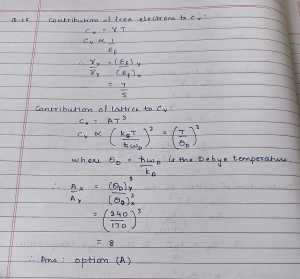 Contribution of free electrons to Cv:
Cv = γT
Cv ∝ 1/EF
∴ γY/γX = (EF)X/(EF)Y
= 4/5
Contribution of lattice to Cv:
Cv = AT³
Cv ∝ (kBT/ħωD)³ = (T/θD)³
where θD = ħωD/kB is the Debye temperature
= (240/170)³
= 8
∴ Ans: option (A)